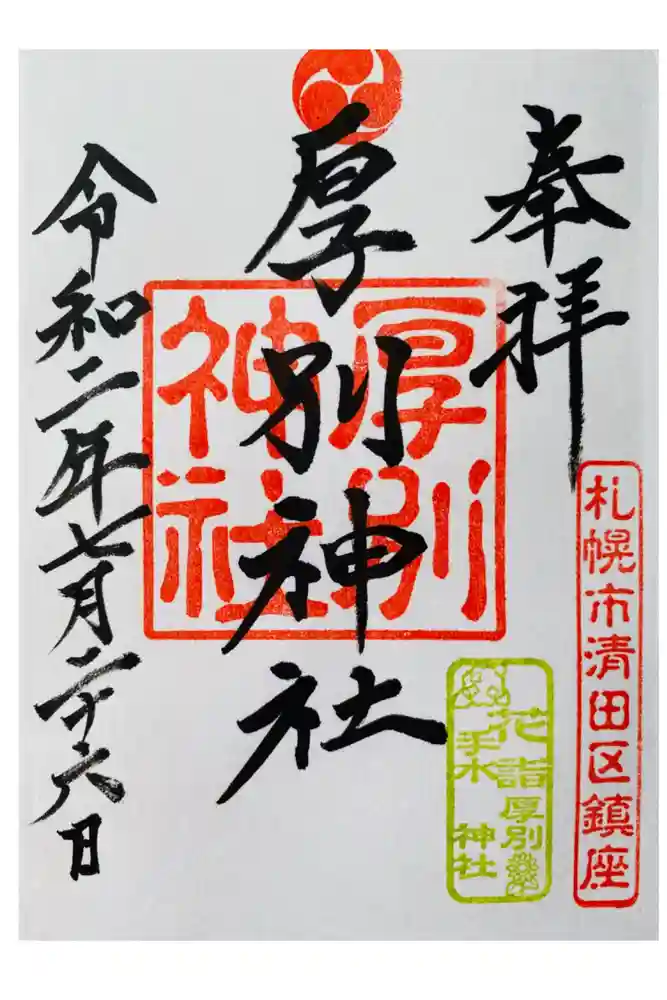 奉拝
札幌市清田区鎮座
厚別神社
厚別
神社
花詣
厚別
手水
神社
令和二年七月二十六日